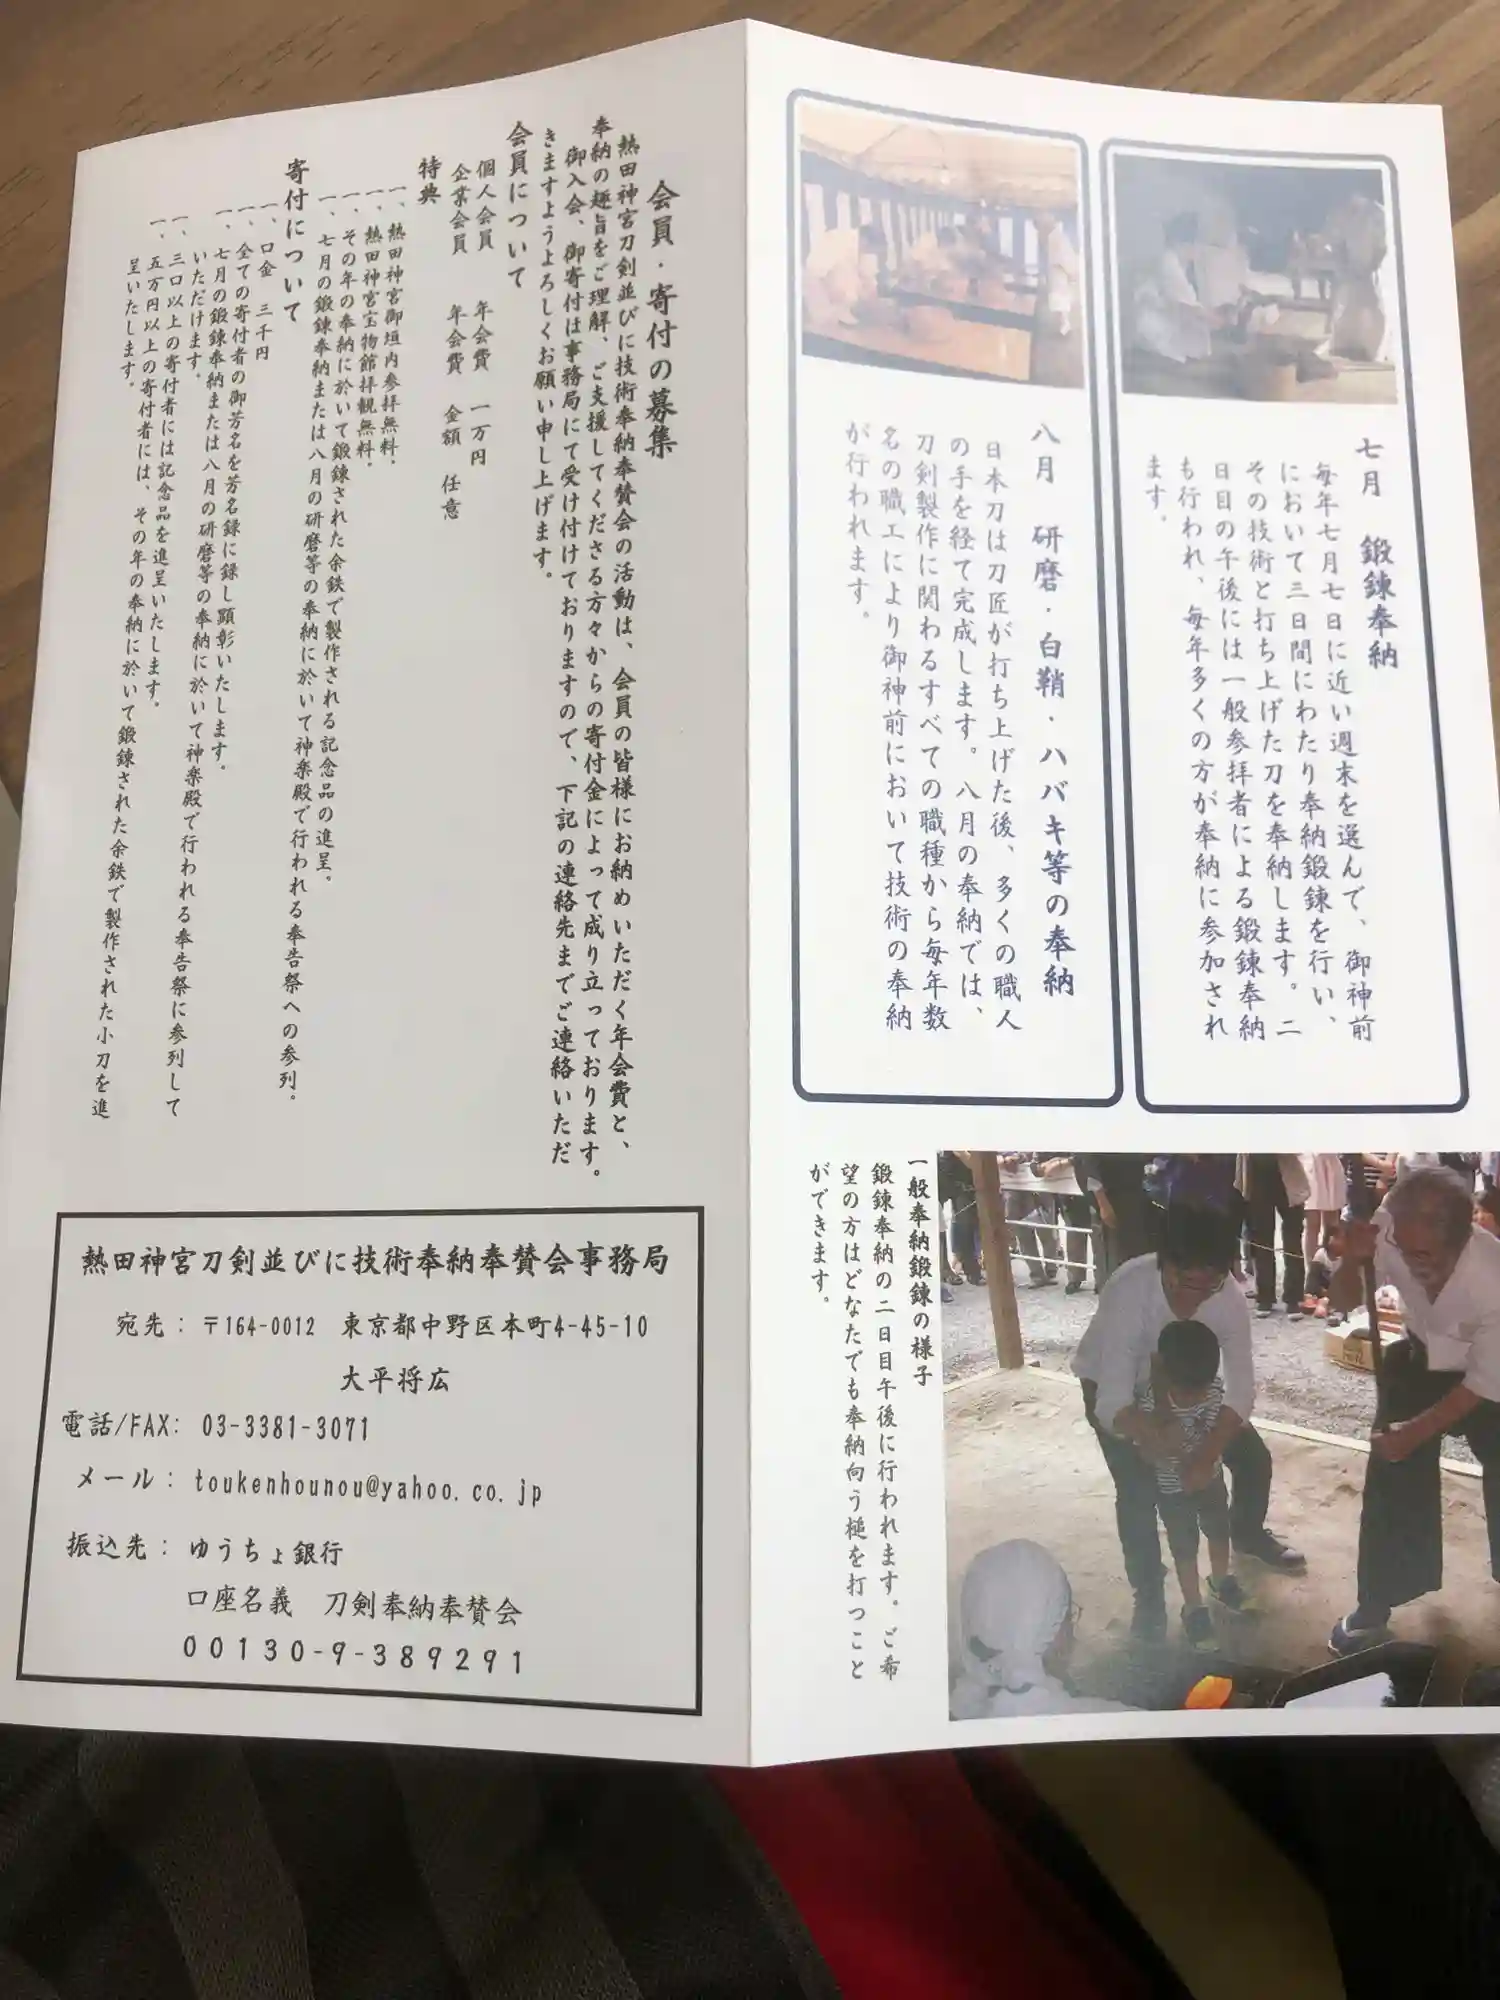 七月　鍛錬奉納
毎年七月七日に近い週末を選んで、御神前
において三日間にわたり奉納鍛錬を行い、
その技術と打ち上げた刀を奉納します。二
日目の午後には一般参拝者による鍛錬奉納
も行われ、毎年多くの方が奉納に参加され
ます。
八月　研磨・白鞘・ハバキ等の奉納
日本刀は刀匠が打ち上げた後、多くの職人
の手を経て完成します。八月の奉納では、
刀剣製作に関わるすべての職種から毎年数
名の職工により御神前において技術の奉納
が行われます。
一般奉納鍛錬の様子
鍛錬奉納の二日目午後に行われます。ご希
望の方はどなたでも奉納向う槌を打つこと
ができます。
会員・寄付の募集
熱田神宮刀剣並びに技術奉納奉賛会の活動は、会員の皆様にお納めいただく年会費と、
奉納の趣旨をご理解、ご支援してくださる方々からの寄付金によって成り立っております。
御入会、御寄付は事務局にて受け付けておりますので、下記の連絡先までご連絡いただ
きますようよろしくお願い申し上げます。
会員について
個人会員　年会費　一万円
企業会員　年会費　金額　任意
特典
一、熱田神宮御垣内参拝無料。
一、熱田神宮宝物館拝観無料。
一、その年の奉納に於いて鍛錬された余鉄で製作される記念品の進呈。
一、七月の鍛錬奉納または八月の研磨等の奉納に於いて神楽殿で行われる奉告祭への参列。
寄付について
一、口金　三千円
一、全ての寄付者の御芳名を芳名録に録し顕彰いたします。
一、七月の鍛錬奉納または八月の研磨等の奉納に於いて神楽殿で行われる奉告祭に参列して
いただけます。
一、三口以上の寄付者には記念品を進呈いたします。
一、五万円以上の寄付者には、その年の奉納に於いて鍛錬された余鉄で製作された小刀を進
呈いたします。
熱田神宮刀剣並びに技術奉納奉賛会事務局
宛先：〒164-0012　東京都中野区本町4-45-10
大平将広
電話/FAX: 03-3381-3071
メール：toukenhounou@yahoo.co.jp
振込先：ゆうちょ銀行
口座名義　刀剣奉納奉賛会
00130-9-389291